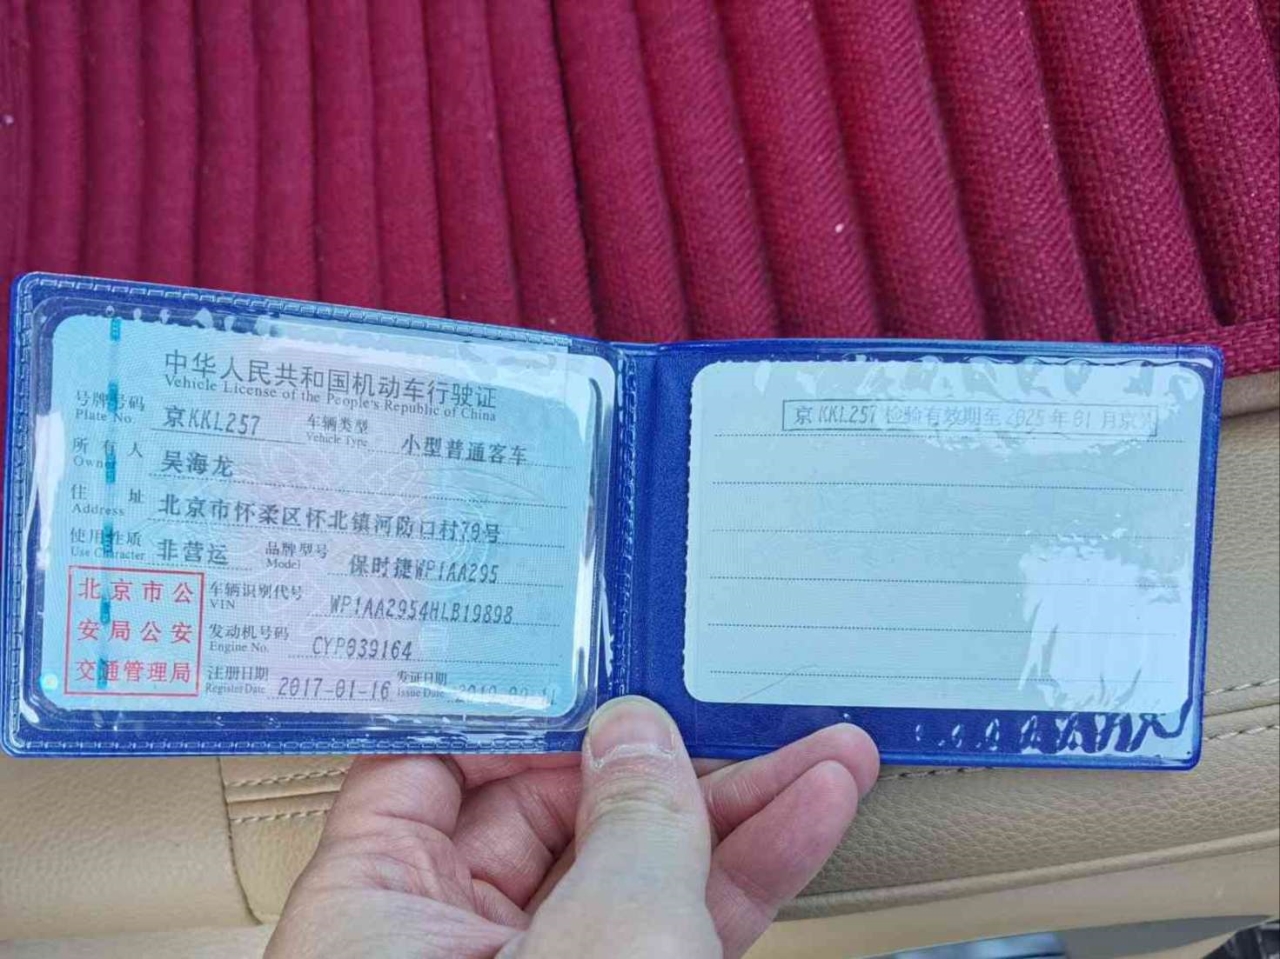 中华人民共和国机动车行驶证
Vehicle License of the People's Republic of China
号牌号码 京KKL257 车辆类型 小型普通客车
Plate No. Vehicle Type
所有人 吴海龙
Owner
住址 北京市怀柔区怀北镇河防口村79号
Address
使用性质 非营运 品牌型号 保时捷WP1AA295
Use Character Model
北京市公
安局公安
交通管理局
车辆识别代号 WP1AA2954HLB19898
VIN
发动机号码 CYP039164
Engine No.
注册日期 2017-01-16 发证日期
Register Date Issue Date
京KKL257 检验有效期至 2025年01月京